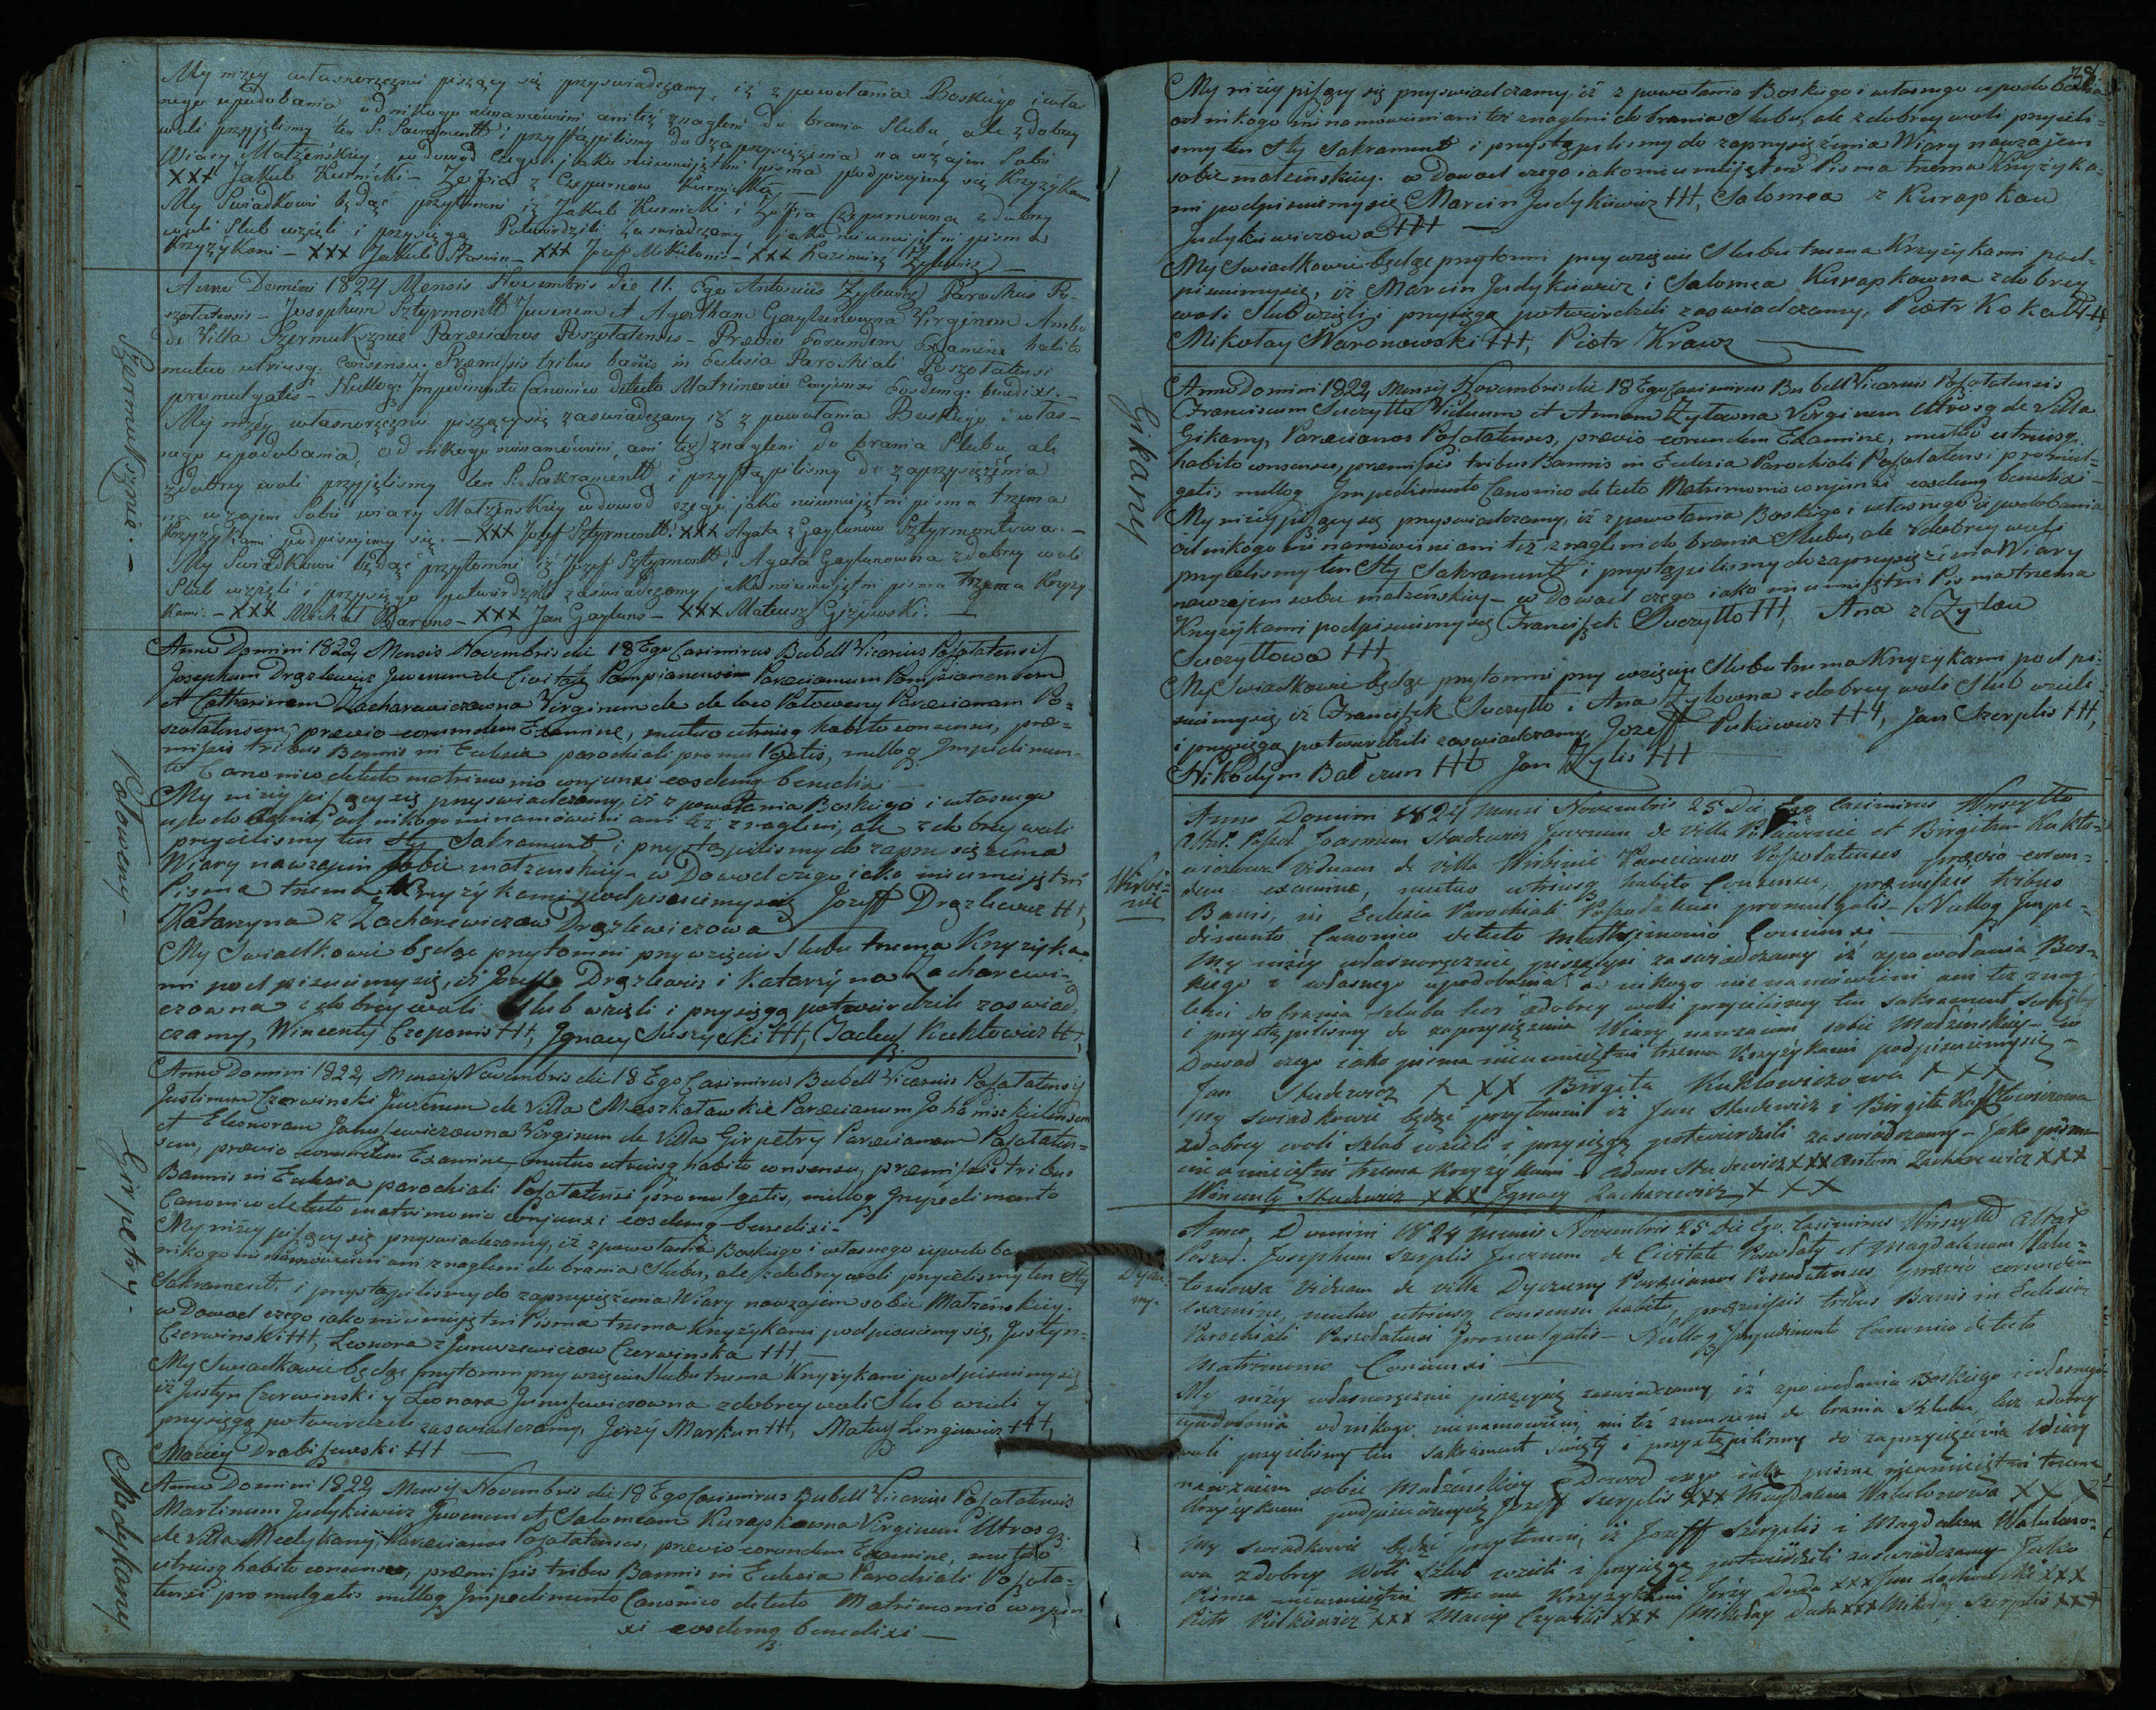 My niżey własnoręcznie piszący się przyświadczamy, iż z powołania Boskiego i wła
nego upodobania od nikogo nienamówieni ani też znagleni do brania Slubu ale z dobrey
woli przyjęlismy ten S. Sacrament i przystąpilismy do zaprzysiężenia na wzajem Sobie
Wiary Małżeńskiey, w dowod czego jako nieumiejętni pisma podpisujemy się Krzyżykam
XXX Jakub Kurnicki - Zofia z Czepurnow Kurnicka -
My Swiadkowie będąc przytomni iż Jakub Kurnicki i Zofia Czepurnowna z dobrey
woli Slub wzięli i przysięgą Potwierdzili zaswiadczamy jako nieumiejętni pisma
Krzyżykami - XXX Jakub - XXX Jozef - XXX Kazimierz Zylewicz -
Anno Domini 1824 Mensis Novembris die 11. Ego Antonius Zylewicz Parochus Po-
szołatensis - Josephum Sztyrmontt Juvenem et Agatham Gaylunowna Virginem Ambo
de Villa Szermuksznie Parœcianos Poszołatenses - Prævio Eorundem Examine habito
mutuo utriusq. Consensu. Præmissis tribus bannis in Eclesia Parochiali Poszołatensi
promulgatis - Nulloq: Impedimento Canonico detecto Matrimonio Conjunxi Eosdemq: benedixi. -
My niżey własnoręcznie piszący się zaswiadczamy iż z powołania Boskiego i włas-
nego upodobania, od nikogo nienamówieni, ani też znagleni do brania Slubu, ale
z dobrey woli przyjęlismy ten S. Sakramentt i przystąpilismy do zaprzysiężenia
na wzajem Sobie wiary Małżenskiey w dowod czego jako nieumiejętni pisma trzema
Krzyżykami podpisujemy się. - XXX Jozef Sztyrmontt. XXX Agata z Gaylunow Sztyrmontowa. -
My Swiadkowie będąc przytomni iż Jozef Sztyrmontt i Agata Gaylunowna z dobrey woli
Slub wzięli i przysięgą potwierdzili zaswiadczamy jako nieumiejętni pisma trzema Krzyży
Kami: - XXX Michał Barons - XXX Jan Gayluns - XXX Mateusz Gizewski. -
Szermuksznie. -
Anno Domini 1824 Mensis Novembris die 18 Ego Casimirus Bubell Vicarius Poszołatensis
Josephum Drązlewicz Juvenem de Civitate Pompianensi Parœcianum Pompianensem
et Catharinam Zacharewiczowna Virginem de de loco Połoweny Parœcianam Po-
szołatensem, prævio eorumdem Examine, mutuo utriusq habito consensu, præ-
missis tribus Bannis in Eclesia parochiali promulgatis, nulloq Impedimen-
to Canonico detecto matrimonio conjunxi eosdemq benedixi -
My niżey piszący się przyswiadczamy, iż z powołania Boskiego i własnego
upodobania, od nikogo nienamowieni ani też znagleni, ale z dobrey woli
przyielismy ten Sty Sakrament i przystąpilismy do zaprzysiężenia
Wiary nawzajem sobie małzenskiey - w Dowod czego iako nieumiejętni
Pisma trzema Krzyżykami podpisuiemy się Jozeff Drązlewicz ttt,
Katarzyna z Zacharewiczow Drązlewiczowa
My Swiadkowie będąc przytomni przy wzięciu Slubu trzema Krzyżyka-
mi podpisuiemy się, iż Jozeff Drązlewicz i Katarzyna Zacharewi-
czowna z dobrey woli Slub wzięli i przysięgą potwierdzili zaswiad-
czamy, Wincenty Czeponis ttt, Ignacy Suszycki ttt, Tadeusz Kuktowicz ttt,
Połoweny -
Anno Domini 1824 Mensis Novembris die 18 Ego Casimirus Bubell Vicarius Poszołatensis
Justinum Czerwinski Juvenem de Villa Meszkałauskie Parœcianum Johaniszkielensem
et Eleonoram Januszewiczowna Virginem de Villa Girpetry Parœcianam Poszołaten-
sem, prævio eorumdem Examine mutuo utriusq habito consensu, præmissis tribus
Bannis in Eclesia parochiali Poszołatensi promulgatis, nulloq Impedimento
Canonico detecto matrimonio conjunxi eosdemq benedixi -
My niżey piszący się przyswiadczamy, iż z powołania Boskiego i własnego upodoba
nikogo nienamowieni ani znagleni do brania Slubu, ale z dobrey woli przyielismy ten Sty
Sakrament, i przystąpilismy do zaprzysiężenia Wiary nawzajem sobie Małzenskiey.
w Dowod czego iako nieumiejętni Pisma trzema Krzyżykami podpisuiemy się, Justyn-
Czerwinski ttt, Leonora z Januszewiczow Czerwinska ttt,
My Swiadkowie będąc przytomni przy wzięciu Slubu trzema Krzyżykami podpisuiemy się
iż Justyn Czerwinski y Leonora Januszewiczowna z dobrey woli Slub wzieli y
przysięgą potwierdzili zaswiadczamy, Jerzy Markun ttt, Mateusz Lingiewicz ttt,
Maciey Drabiszewski ttt
Girpetry -
Anno Domini 1824 Mensis Novembris die 18 Ego Casimirus Bubell Vicarius Poszołatensis
Martinum Judykiewicz Juvenem et Salomeam Kurapkowna Virginem Utrosq.
de Villa Medykany, Parœcianos Poszołatenses, prævio eorundem Examine, mutuo
utriusq habito consensu, præmissis tribus Bannis in Eclesia Parochiali Poszoła-
tensi promulgatis nulloq Impedimento Canonico detecto Matrimonio conjun
xi eosdemq benedixi -
Medykany
38
My niżey piszący się przyswiadczamy, iż z powołania Boskiego i własnego upodobania
od nikogo nienamowieni ani też znagleni do brania Slubu, ale z dobrey woli przyieli-
smy ten Sty Sakrament i przystąpilismy do zaprzysiężenia Wiary nawzajem
sobie małzenskiey. w Dowod czego iako nieumiejętni Pisma trzema Krzyżyka-
mi podpisuiemy się Marcin Judykiewicz ttt, Salomea z Kurapkow
Judykiewiczowa ttt -
My Swiadkowie będąc przytomni przy wzięciu Slubu trzema Krzyżykami pod-
pisuiemy się, iż Marcin Judykiewicz i Salomea Kurapkowna z dobrey
woli Slub wzięli i przysięgą potwierdzili zaswiadczamy, Piotr Kokalis ttt,
Mikołay Waronowski ttt, Piotr Krawz
Anno Domini 1824 Mensis Novembris die 18 Ego Casimirus Bubell Vicarius Poszołatensis
Franciscum Suczytto Viduum et Annam Zyłowna Virginem Utrosq de Villa
Gikany, Parœcianos Poszołatenses, prævio eorundem Examine, mutuo utriusq.
habito consensu, præmissis tribus Bannis in Eclesia Parochiali Poszołatensi promul-
gatis nulloq Impedimento Canonico detecto Matrimonio conjunxi eosdemq benedixi -
My niżey piszący się przyswiadczamy, iż z powołania Boskiego i własnego upodobania
od nikogo nienamowieni ani też znagleni do brania Slubu, ale z dobrey woli
przyielismy ten Sty Sakrament i przystąpilismy do zaprzysiężenia Wiary
nawzajem sobie małzenskiey - w Dowod czego iako nieumiejętni Pisma trzema
Krzyżykami podpisuiemy się Franciszek Suczytto ttt, Ana z Zyłow
Suczyttowa ttt
My Swiadkowie będąc przytomni przy wzięciu Slubu trzema Krzyżykami podpi-
suiemy się, iż Franciszek Suczytto i Ana Zyłowna z dobrey woli Slub wzieli
i przysięgą potwierdzili zaswiadczamy, Jozeff Pukiewicz ttt, Jan Szerplis ttt,
Nikodym Balczun ttt Jan Zylis ttt
Gikany
Anno Domini 1824 Mensi Novembris 25 Die Ego Casimirus Wirszytto
Altar. Poszoł Joannem Studewicz Juvenem de villa et Birgittam Kukto-
wiczowa Viduam de villa Wirbinie Parecianos Poszołatenses prævio eorun-
dem examine, mutuo utriusq habito Consensu, præmissis tribus
Banis, in Eclesia Parochiali Poszołatensi promulgatis - Nulloq Impe-
dimento Canonico detecto Mattrimonio Coniunxi
My niżey własnoręcznie piszącysi zaswiadczamy iż z powołania Bos-
kiego i własnego upodobania nikogo nienamówieni ani też znag
leni do brania szlubu lecz zdobrey woli przyielismy ten sakrament święty
i przystąpilismy do zaprzysiężenia Wiary nawzaiem sobie Małżenskiey - w
Dowod czego iako pisma nieumieiętni trzema Krzyżykami podpisuiemysię -
Jan Studewicz X XX Birgita Kuktowiczowa XXX
My swiadkowie będąc przytomni iż Jan Studewicz i Birgita Kuktowiczowa
zdobrey woli szlub wzieli i przysięgą potwierdzili zaswiadczamy - jako pisma
nieumieiętni trzema krzyżykami - Adam Studewicz XXX Antoni Zacharewicz XXX
Wincenty Studewicz XXX Ignacy Zacharewicz XXX
Wirbi-
nie
Anno Domini 1824 Mensis Novembris 25 Die Ego Casimirus Wirszytto Altar
Poszoł. Josephum Szerplis Juvenem de Civitate Poszołaty et Magdalenam Wału-
tonowa Viduam de villa Dyczuny Parecianos Poszołatenses, prævio eorundem
examine, mutuo utriusq Consensu habito, præmissis tribus Banis in Eclesia
Parochiali Poszołatensi Promulgatis - Nulloq Impedimento Canonico detecto
Matrimonio Coniunxi
My niżey własnoręcznie piszącysię zaswiadczamy, iż z powołania Boskiego i własnego
upodobania od nikogo nienamowieni, ani też zmuszeni do brania szlubu, lecz zdobrey
woli przyielismy ten Sakrament święty i przystąpilismy do zaprzysiężenia Wiary
nawzaiem sobie Małżenskiey w Dowod czego iako pisma nieumieiętni trzema
krzyżykami podpisuiemysię Jozeff Szerplis XXX Magdalena Wałutonowa XX X
My swiadkowie będąc przytomni, iż Jozeff Szerplis i Magdalena Wałutono-
wa zdobrey woli szlub wzieli i przysięgą potwierdzili zaswiadczamy - Jako
Pisma nieumieiętni trzema krzyżykami Jerzy Duda XXX Jan XXX
Piotr Pietkiewicz XXX Maciey XXX Mikołay Duda XXX Mikołay Szerplis XXX
Dyczu-
ny.